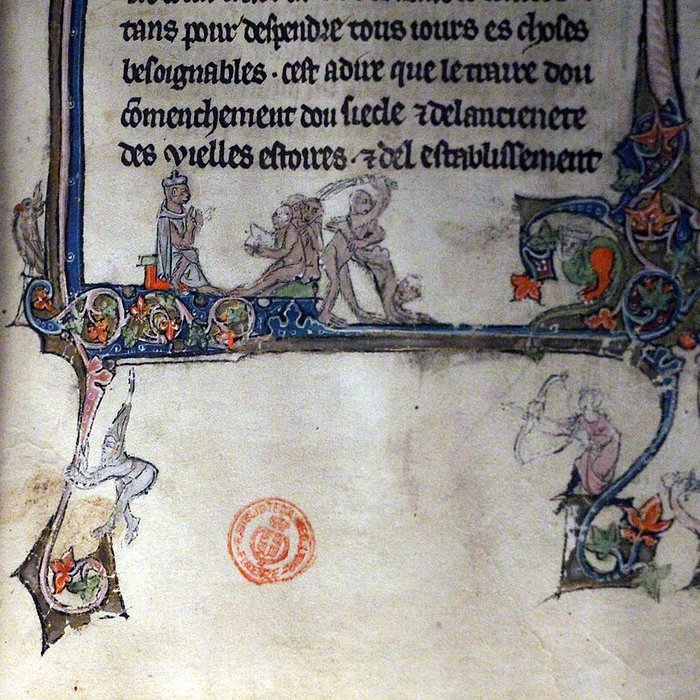 tans pour despendre tous iours es choses
besoignables · cest adire que le traire dou
cōmenchement dou siecle ⁊ delancienete
des vielles estoires · ⁊ del establissement